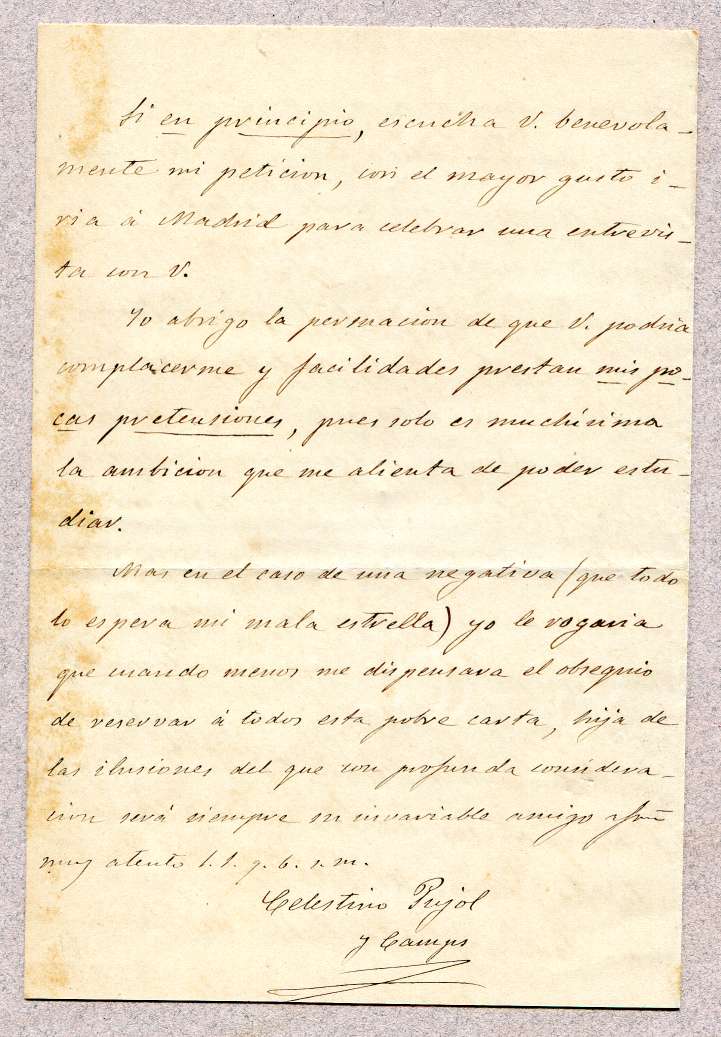 Si en principio, escucha V. benevola-
mente mi peticion, con el mayor gusto i-
ria á Madrid para celebrar una entrevis-
ta con V.
Yo abrigo la persuacion de que V. podria
complacerme y facilidades prestan mis po-
cas pretensiones, pues solo es muchisima
la ambicion que me alienta de poder estu-
diar.
Mas en el caso de una negativa (que todo
lo espera mi mala estrella) yo le rogaria
que cuando menos me dispensara el obsequio
de reservar á todos esta pobre carta, hija de
las ilusiones del que con profunda considera-
cion será siempre su invariable amigo
muy atento S. S. q. b. s. m.
Celestino Pujol
y Camps